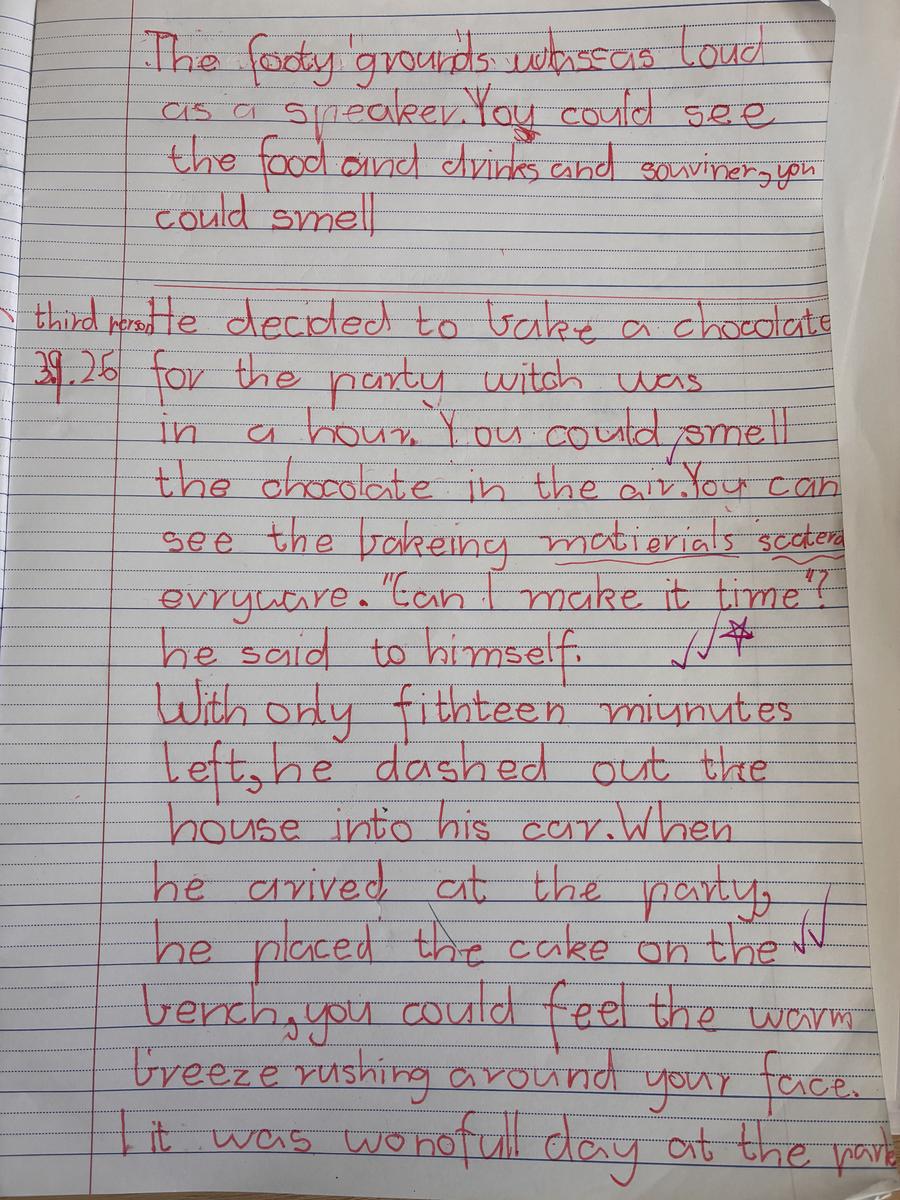 The footy grounds was as loud
as a speaker. You could see
the food and drinks and souviner, you
could smell
third person He decided to bake a chocolate
39.26 for the party witch was
in a hour. You could smell
the chocolate in the air. You can
see the bakeing matierials scaterd
evryware. "Can I make it time"?
he said to himself.
With only fithteen miynutes
left, he dashed out the
house into his car. When
he arived at the party,
he placed the cake on the
bench, you could feel the warm
breeze rushing around your face.
it was wonofull day at the park